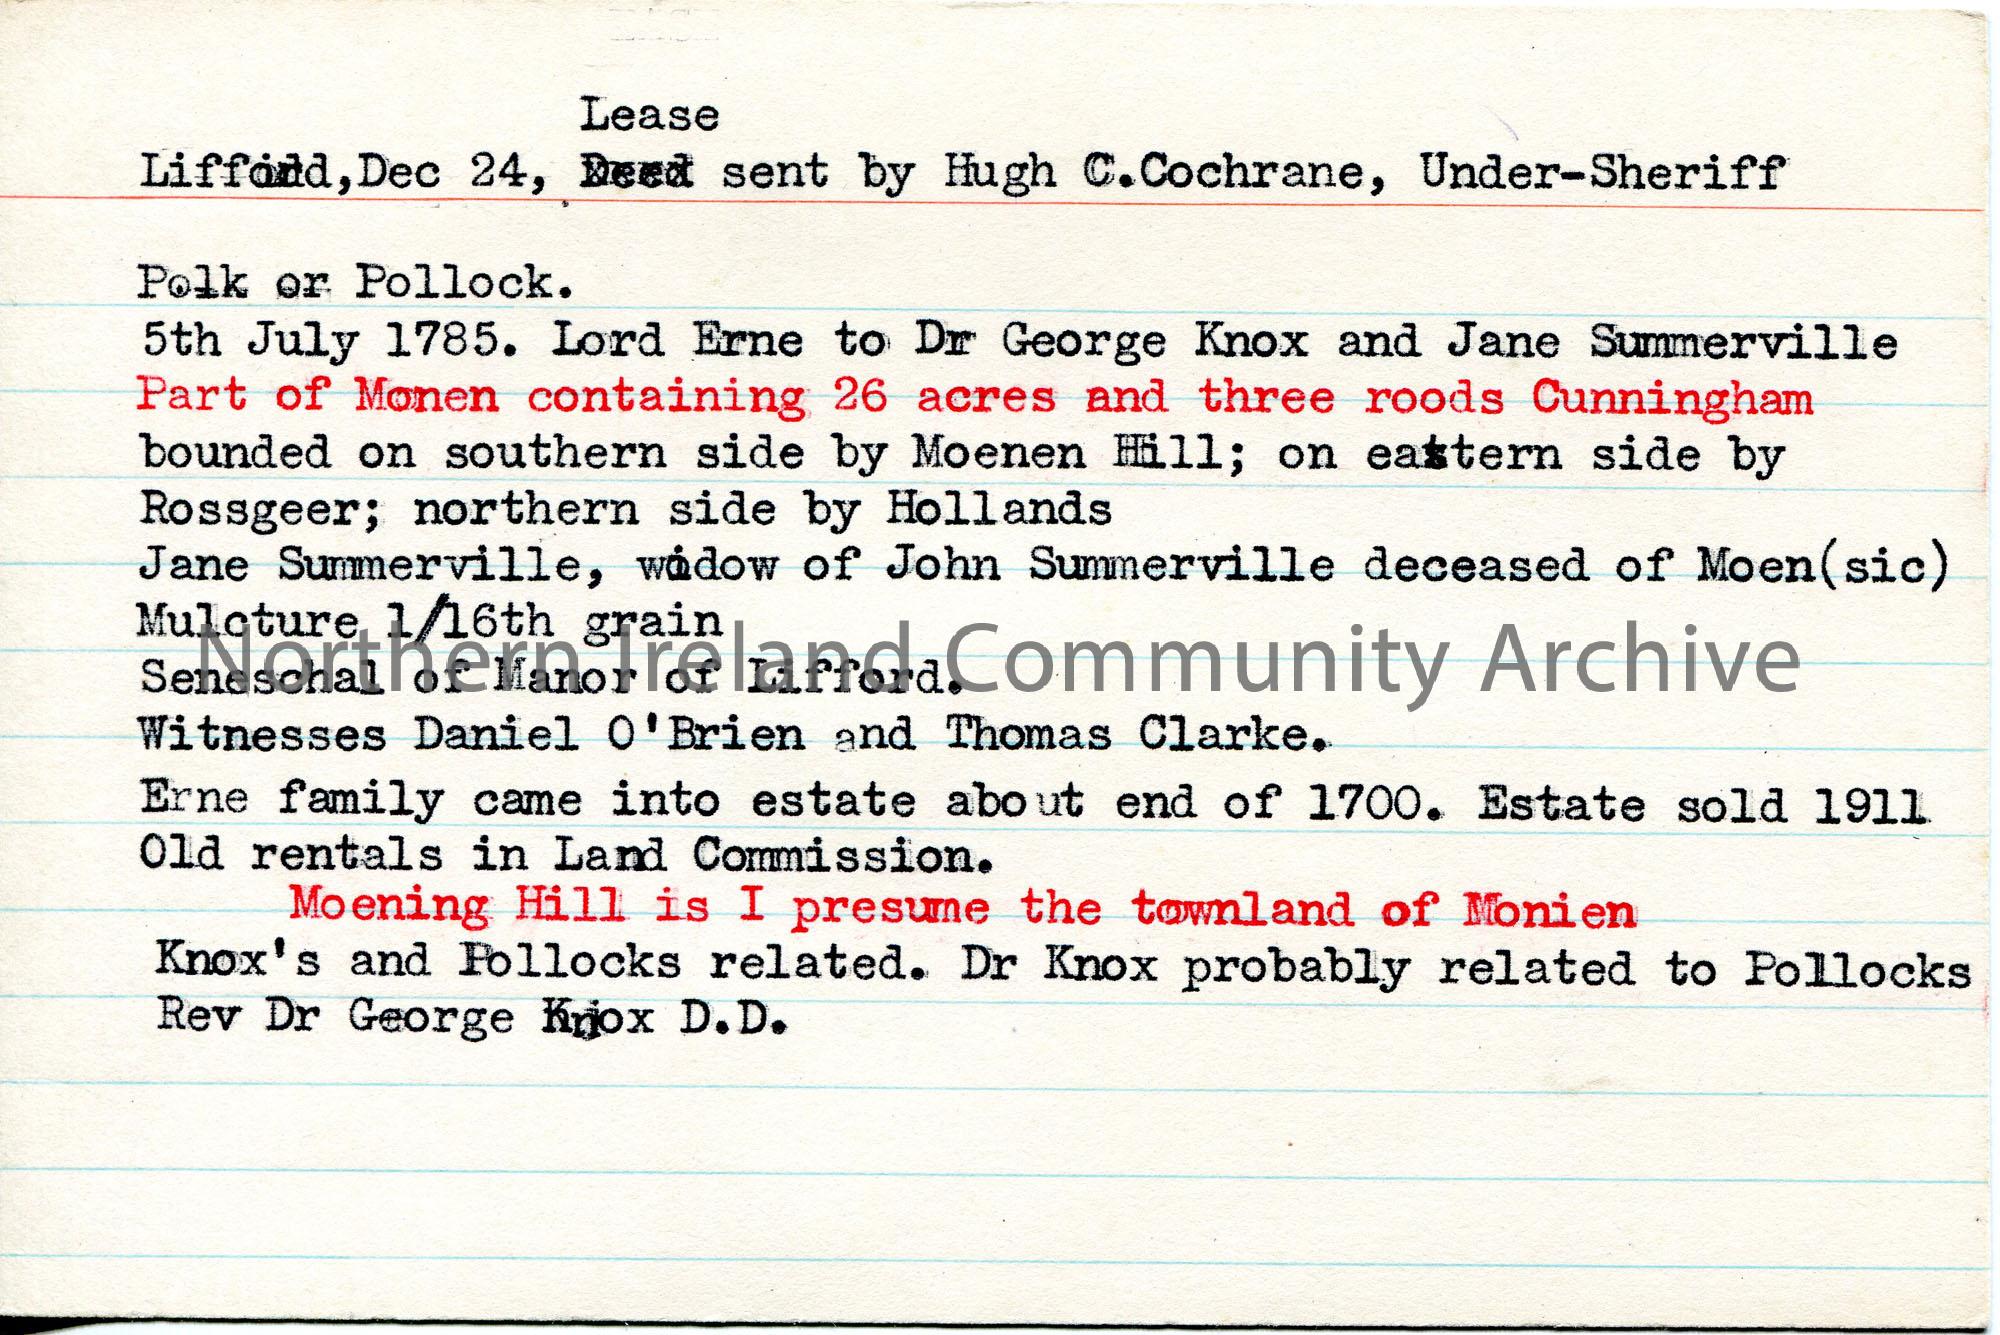 Lease
Lifford,Dec 24, Deed sent by Hugh C.Cochrane, Under-Sheriff
Polk or Pollock.
5th July 1785. Lord Erne to Dr George Knox and Jane Summerville
Part of Monen containing 26 acres and three roods Cunningham
bounded on southern side by Moenen Hill; on eastern side by
Rossgeer; northern side by Hollands
Jane Summerville, widow of John Summerville deceased of Moen(sic)
Mulcture 1/16th grain
Northern Ireland Community Archive
Seneschal of Manor of Lifford.
Witnesses Daniel O'Brien and Thomas Clarke.
Erne family came into estate about end of 1700. Estate sold 1911
Old rentals in Land Commission.
Moening Hill is I presume the townland of Monien
Knox's and Pollocks related. Dr Knox probably related to Pollocks
Rev Dr George Knox D.D.